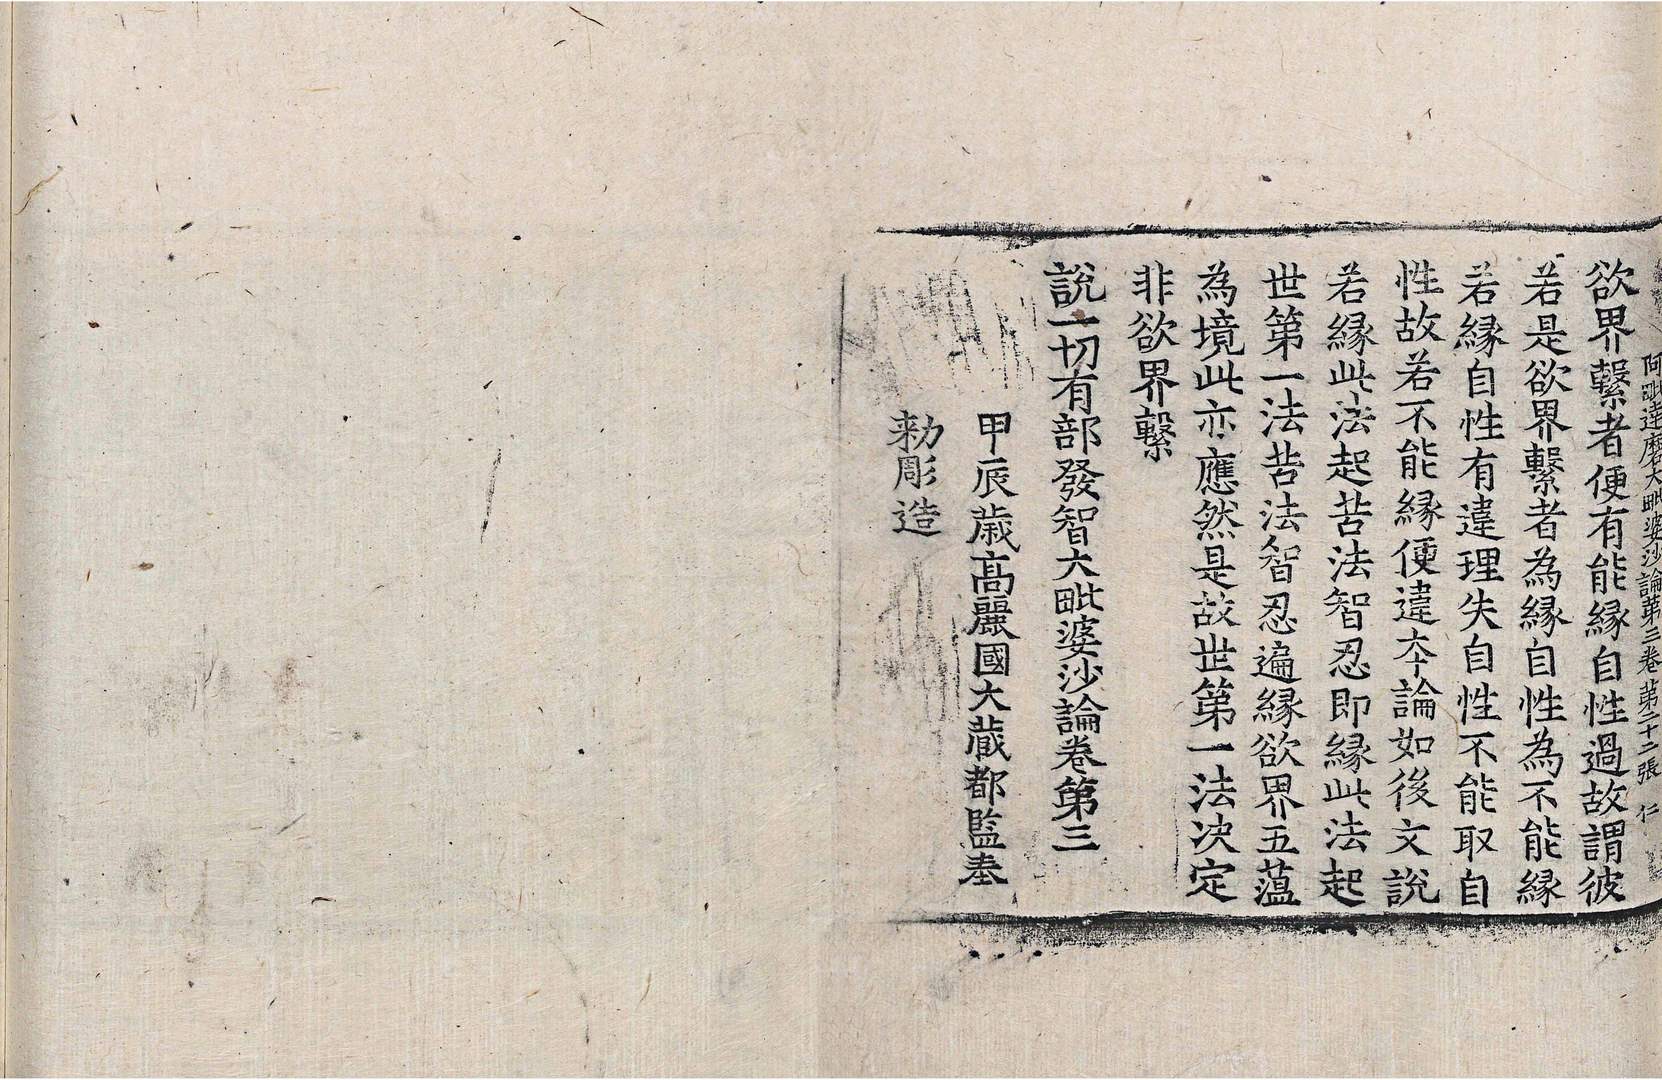 阿毗達磨大毗婆沙論第三卷 第二十二張 仁
欲界繫者便有能緣自性過故謂彼
若是欲界繫者為緣自性為不能緣
若緣自性有違理失自性不能取自
性故若不能緣便違本論如後文說
若緣此法起苦法智忍即緣此法起
世第一法苦法智忍遍緣欲界五蘊
為境此亦應然是故世第一法決定
非欲界繫
說一切有部發智大毗婆沙論卷第三
甲辰歲高麗國大藏都監奉
勑彫造